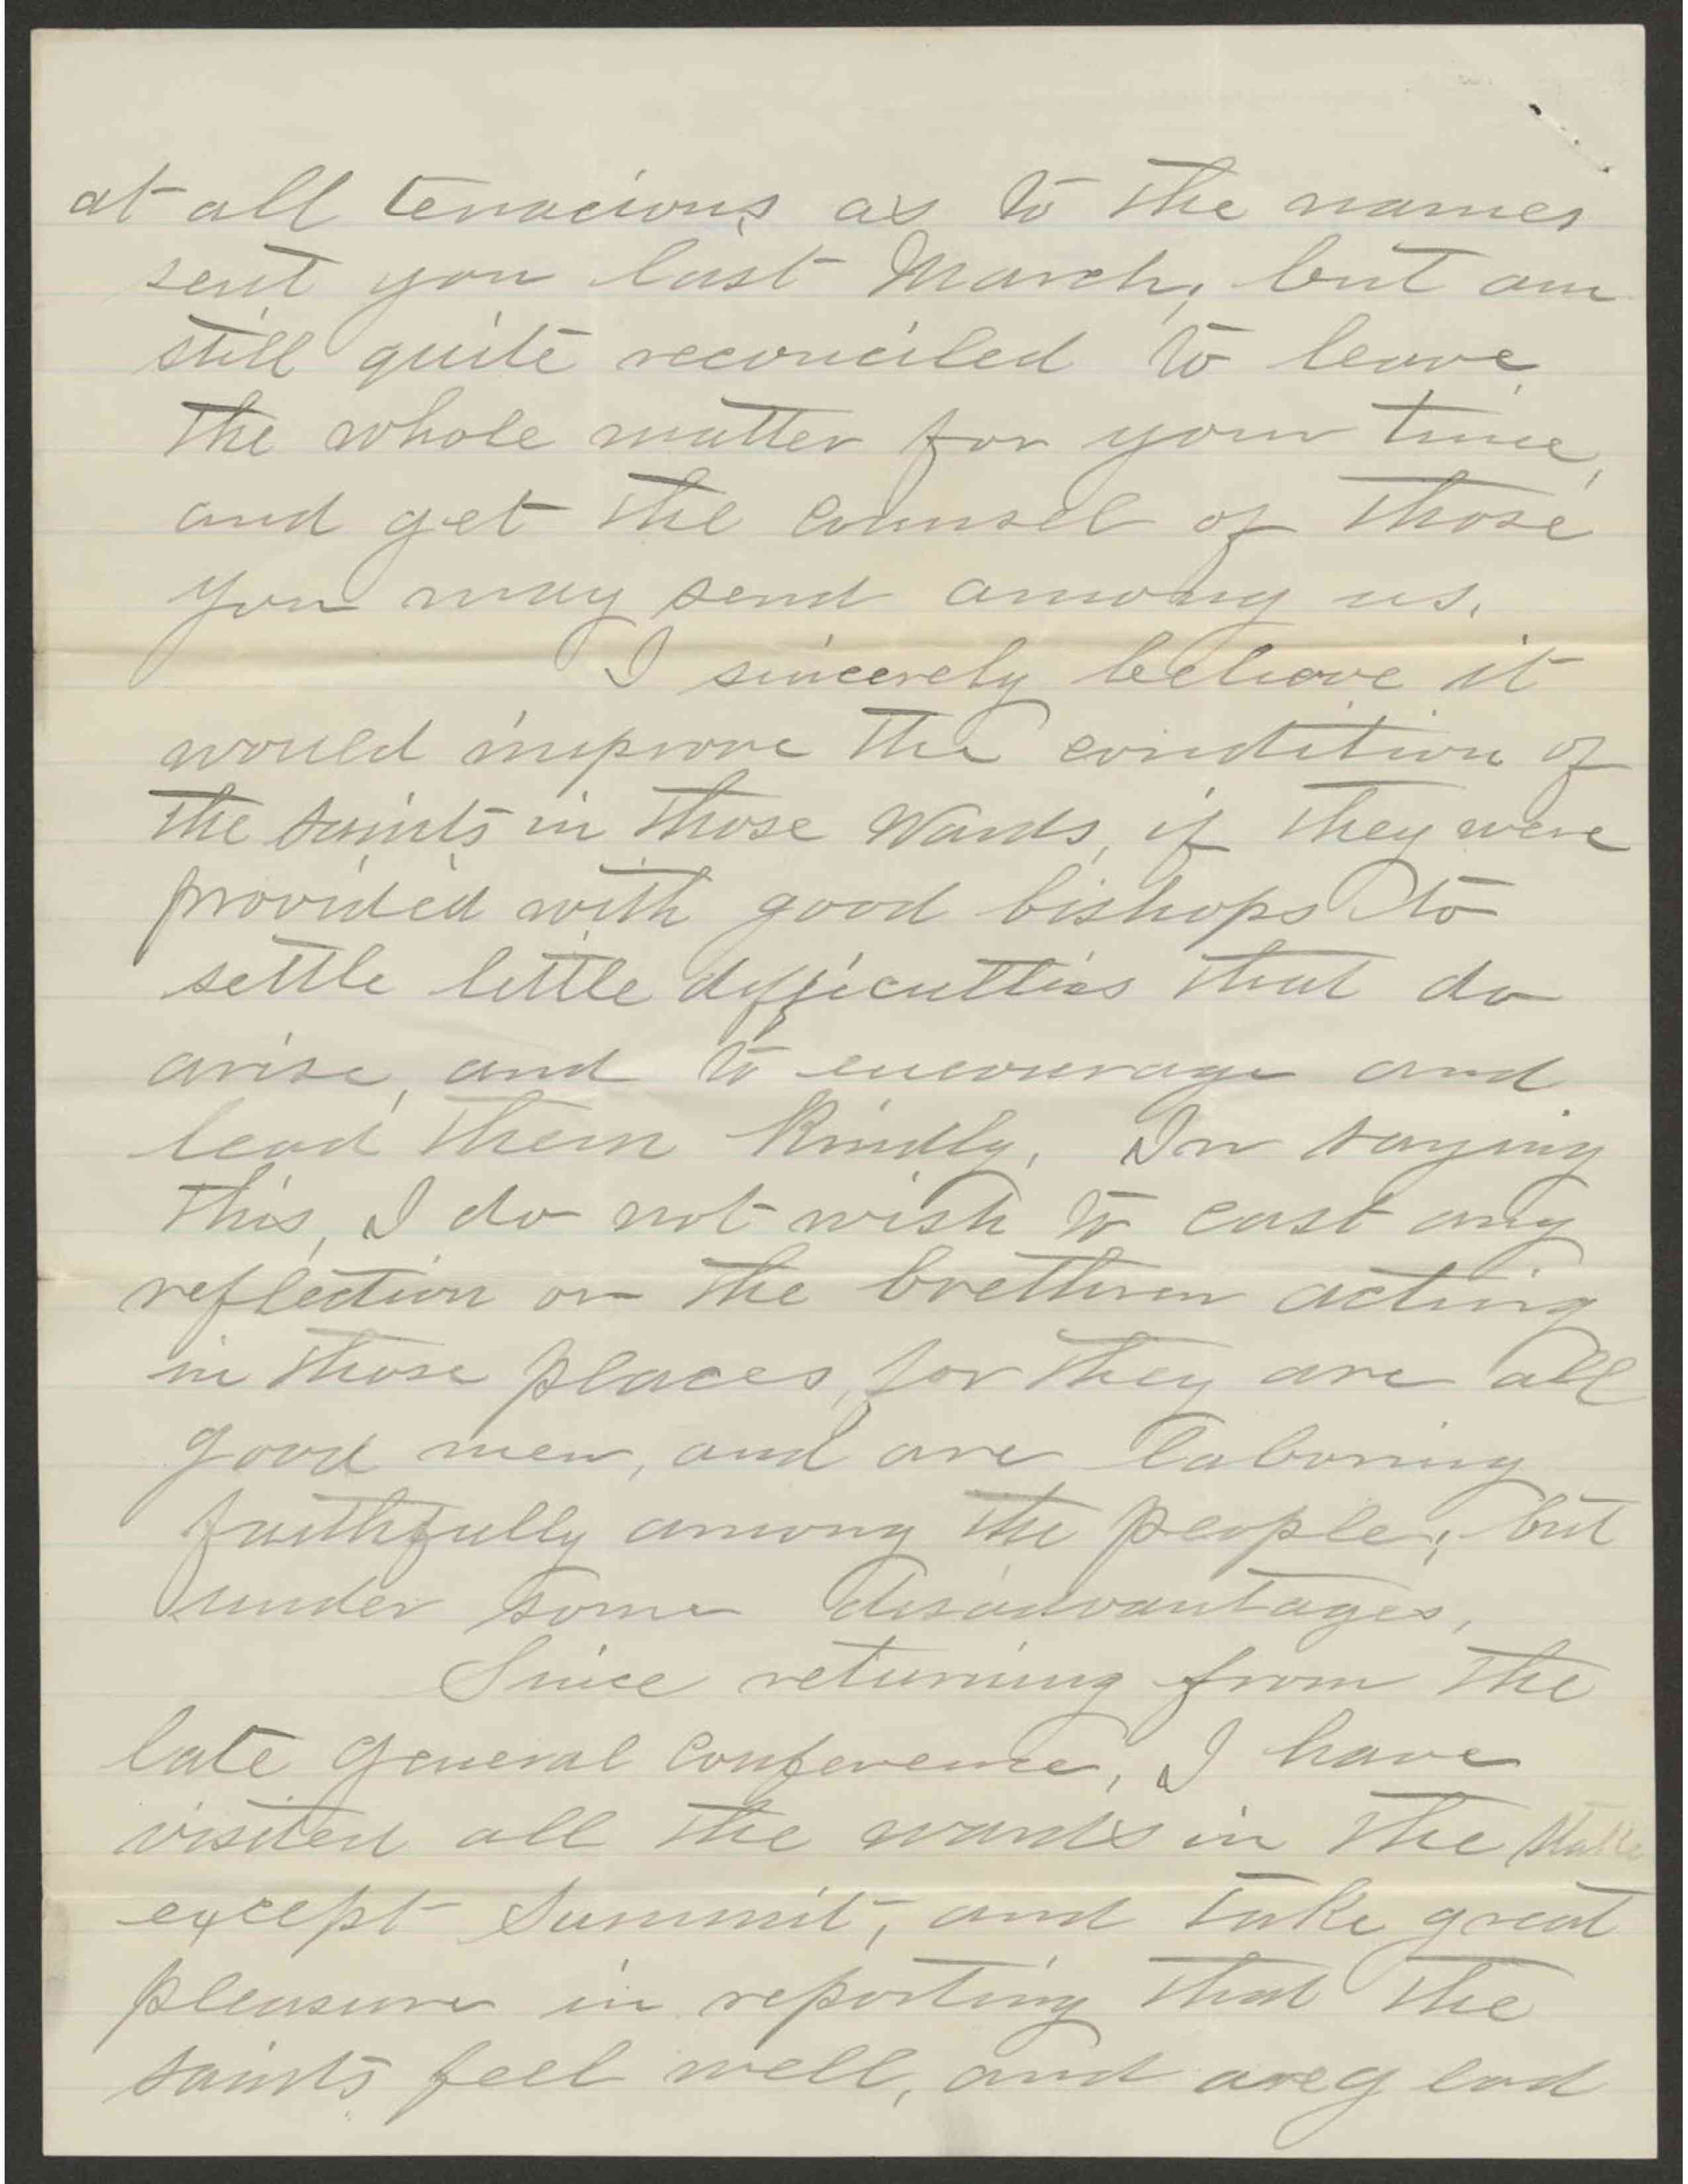 at all tenacious as to the names
sent you last March, but am
still quite reconciled to leave
the whole matter for your time,
and get the counsel of those
you may send among us.
I sincerely believe it
would improve the condition of
the saints in those Wards, if they were
provided with good bishops to
settle little difficulties that do
arise, and to encourage and
lead them kindly. In saying
this, I do not wish to cast any
reflection on the brethren acting
in those places, for they are all
good men, and are laboring
faithfully among the people; but
under some disadvantages.
Since returning from the
late general conference, I have
visited all the wards in the Stake
except Summit, and take great
pleasure in reporting that the
saints feel well, and are glad